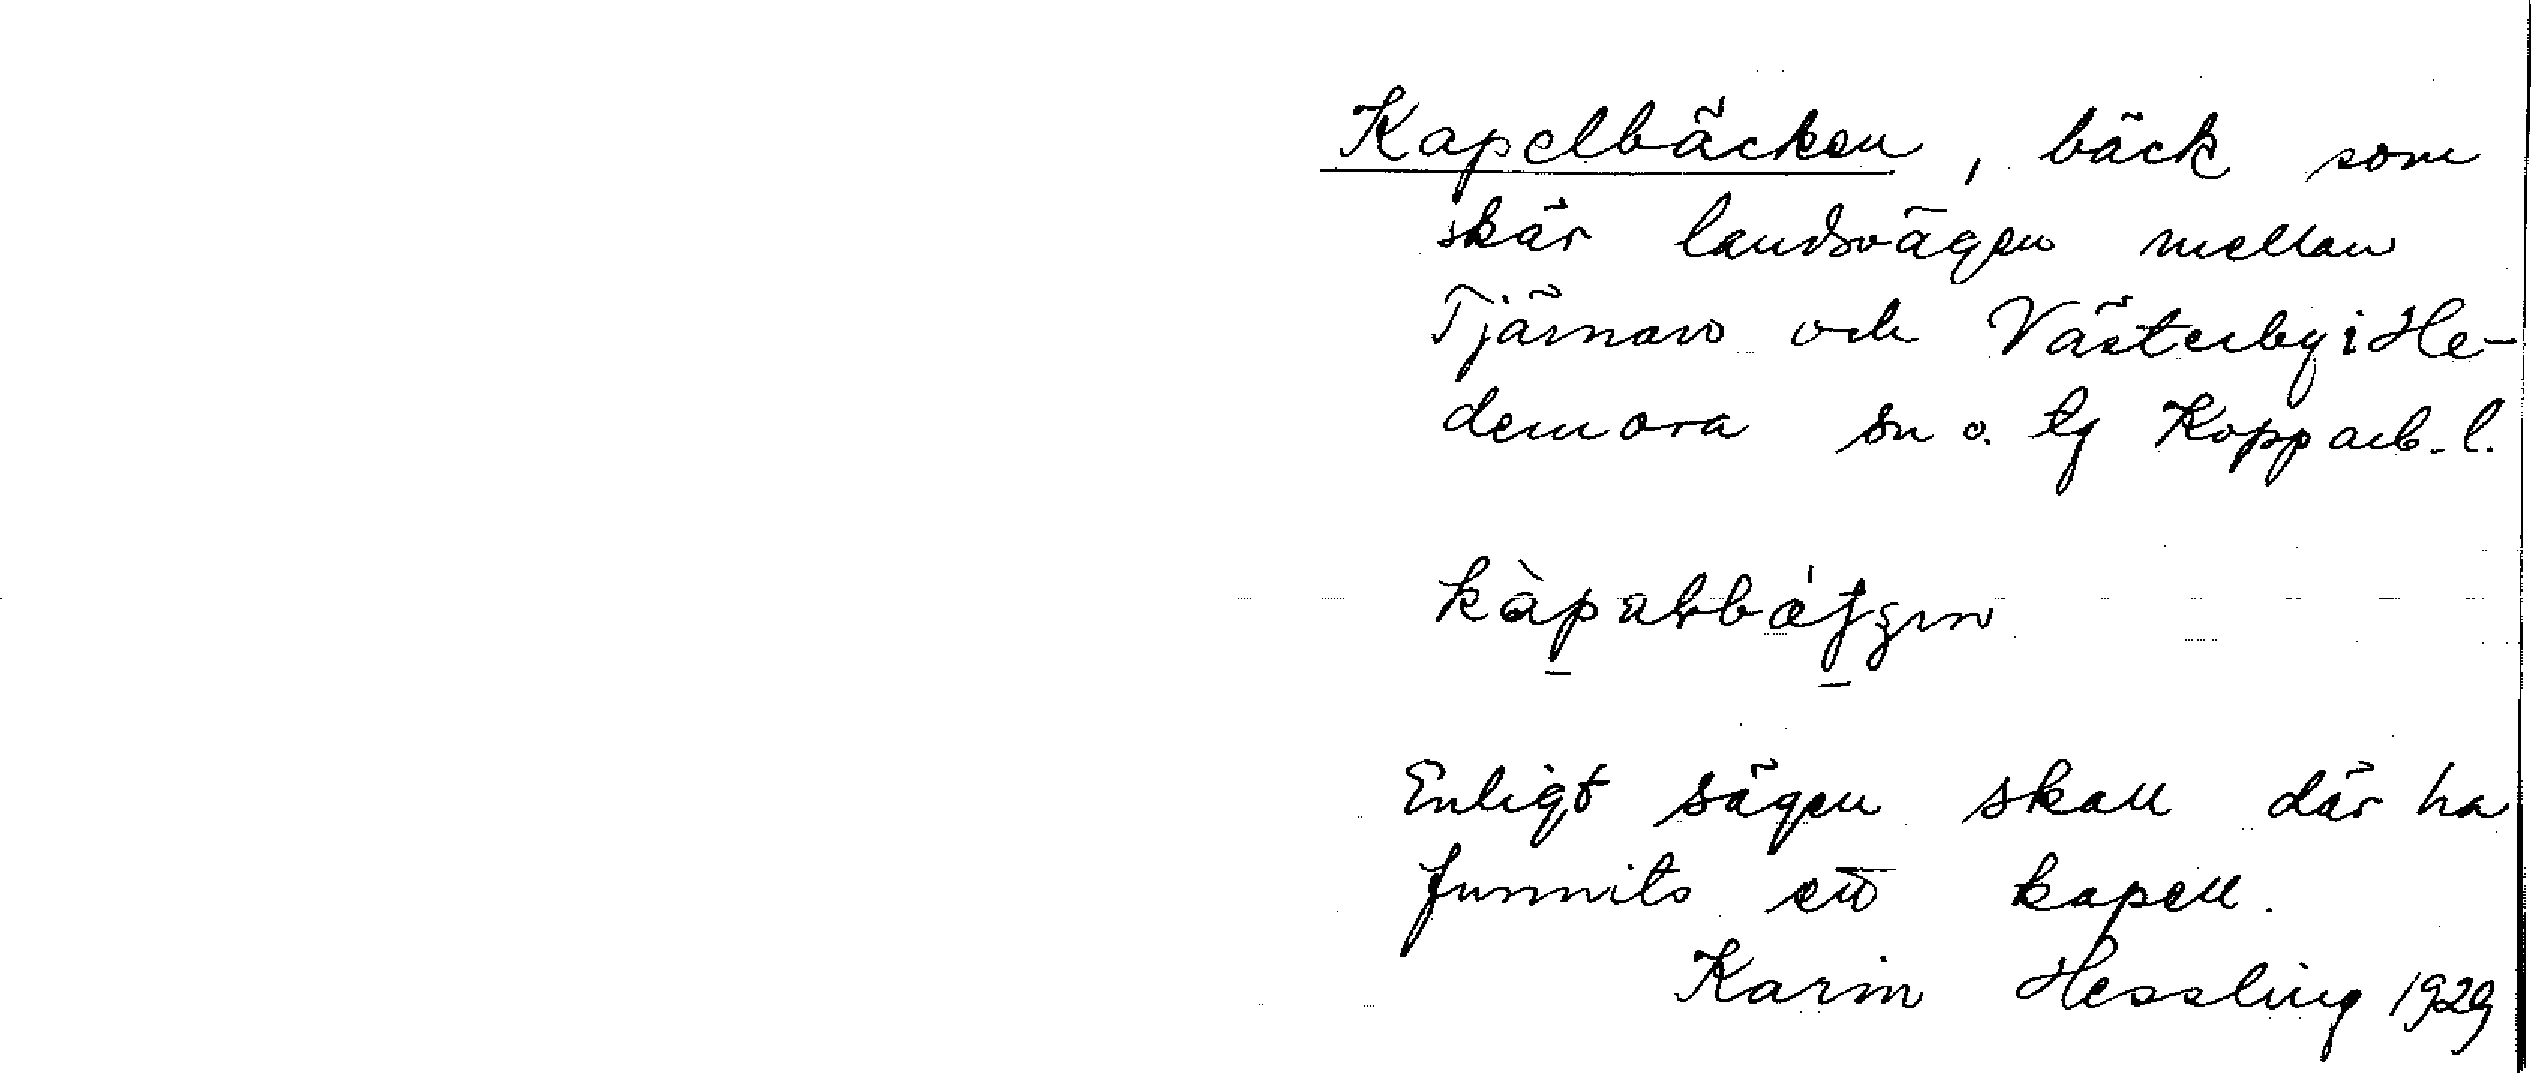 Kapelbäcken, bäck som
skär landsvägen mellan
Tjärnan och Västerby i He-
demora sn o. tg Kopparb. l.
Enligt sägen skall där ha
funnits ett kapell.
Karin Hessling 1929